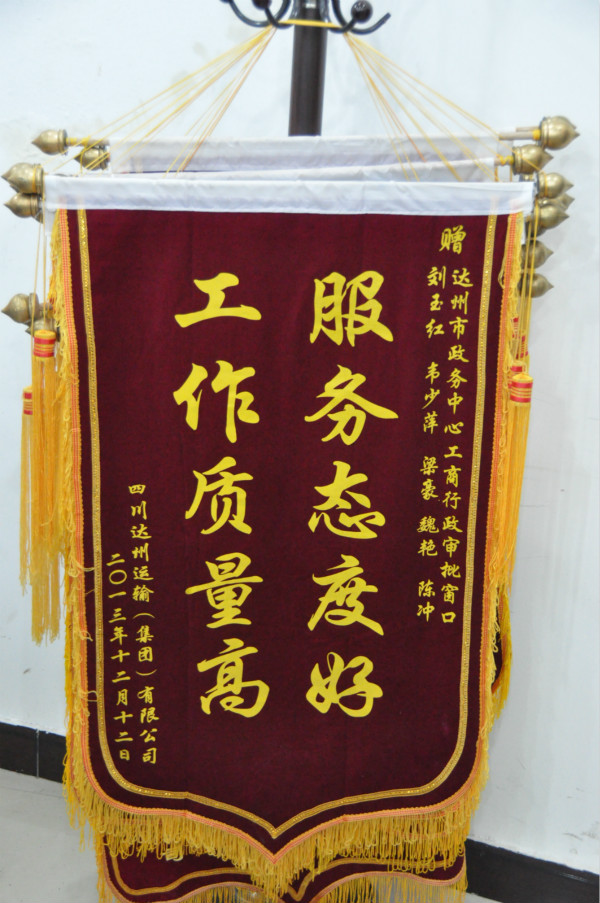 赠
达州市政务中心工商行政审批窗口
刘玉红 韦少萍 梁豪 魏艳 陈冲
服务态度好
工作质量高
四川达州运输（集团）有限公司
二〇一三年十二月十二日